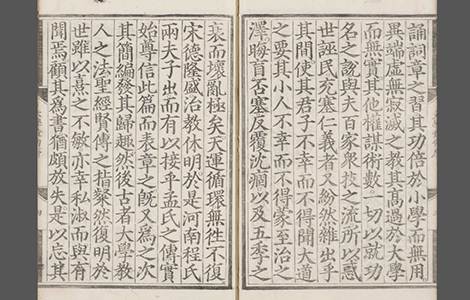 誦詞章之習其功倍於小學而無用
異端虛無寂滅之教其高過於大學
而無實其他權謀術數一切以就功
名之說與夫百家衆技之流所以惑
世誣民充塞仁義者又紛然雜出乎
其間使其君子不幸而不得聞大道
之要其小人不幸而不得蒙至治之
澤晦盲否塞反覆沈痼以及五季之
衰而壞亂極矣天運循環無徃不復
宋德隆盛治教休明於是河南程氏
兩夫子出而有以接乎孟氏之傳實
始尊信此篇而表章之旣又爲之次
其簡編發其歸趣然後古者大學教
人之法聖經賢傳之指粲然復明於
世雖以熹之不敏亦幸私淑而與有
聞焉顧其爲書猶頗放失是以忘其